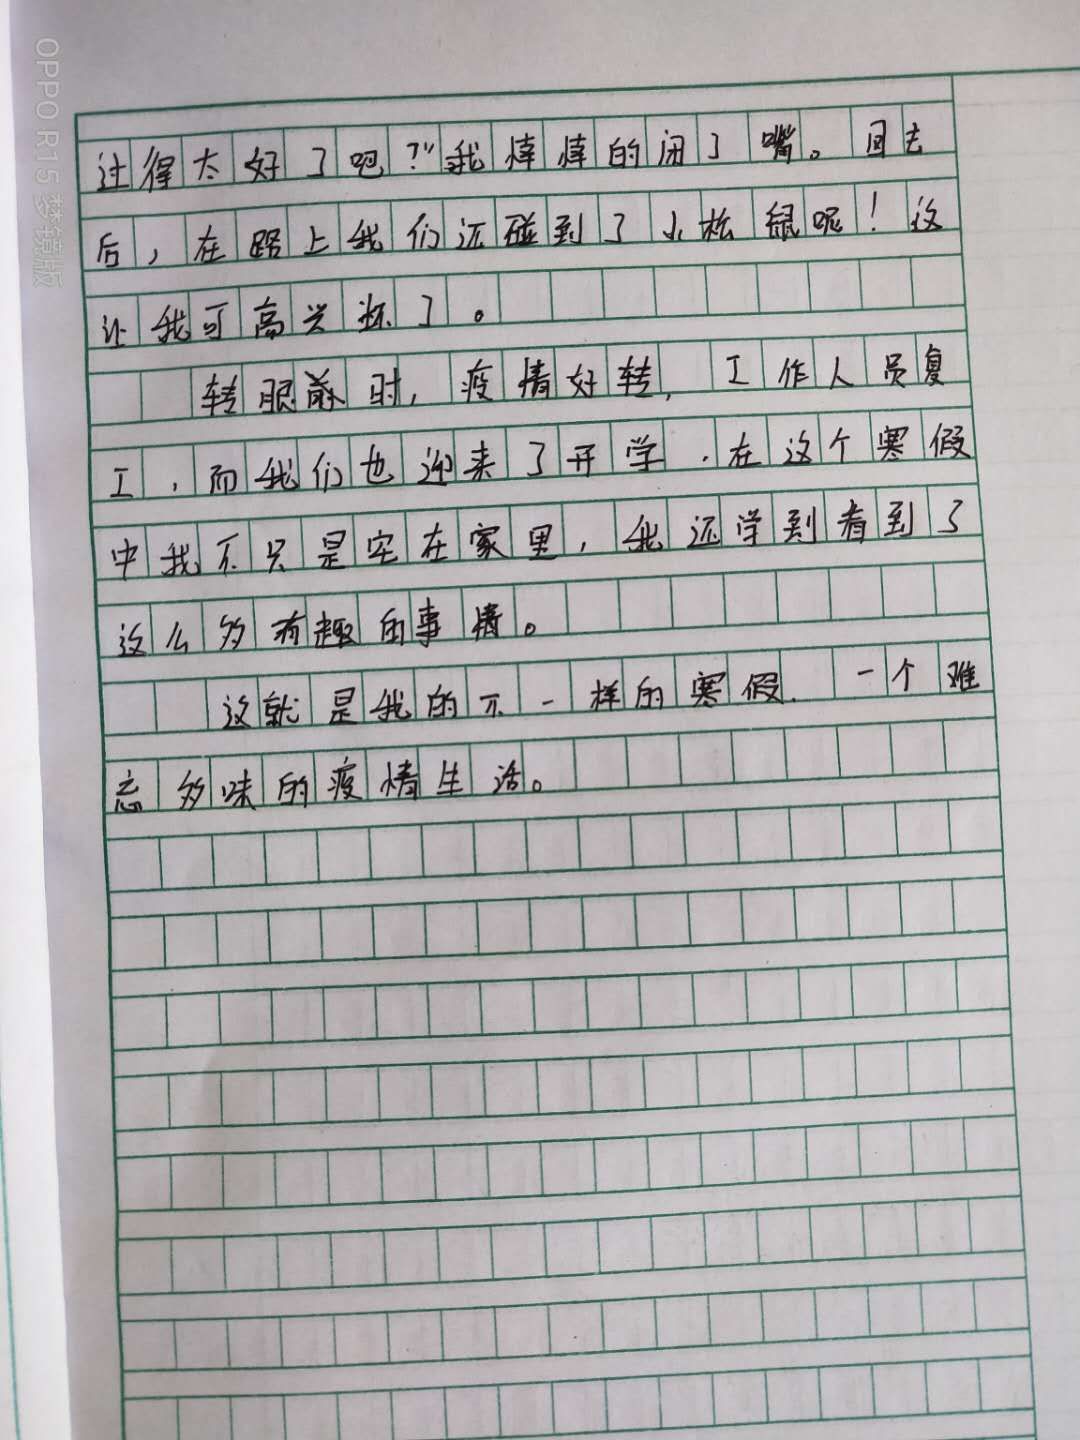 过得太好了吧？”我悻悻的闭了嘴。回去
后，在路上我们还碰到了小松鼠呢！这
让我可高兴坏了。
转眼前时，疫情好转，工作人员复
工，而我们也迎来了开学．在这个寒假
中我不只是宅在家里，我还学到看到了
这么多有趣的事情。
这就是我的不一样的寒假．一个难
忘多味的疫情生活。
OPPO R15 梦镜版